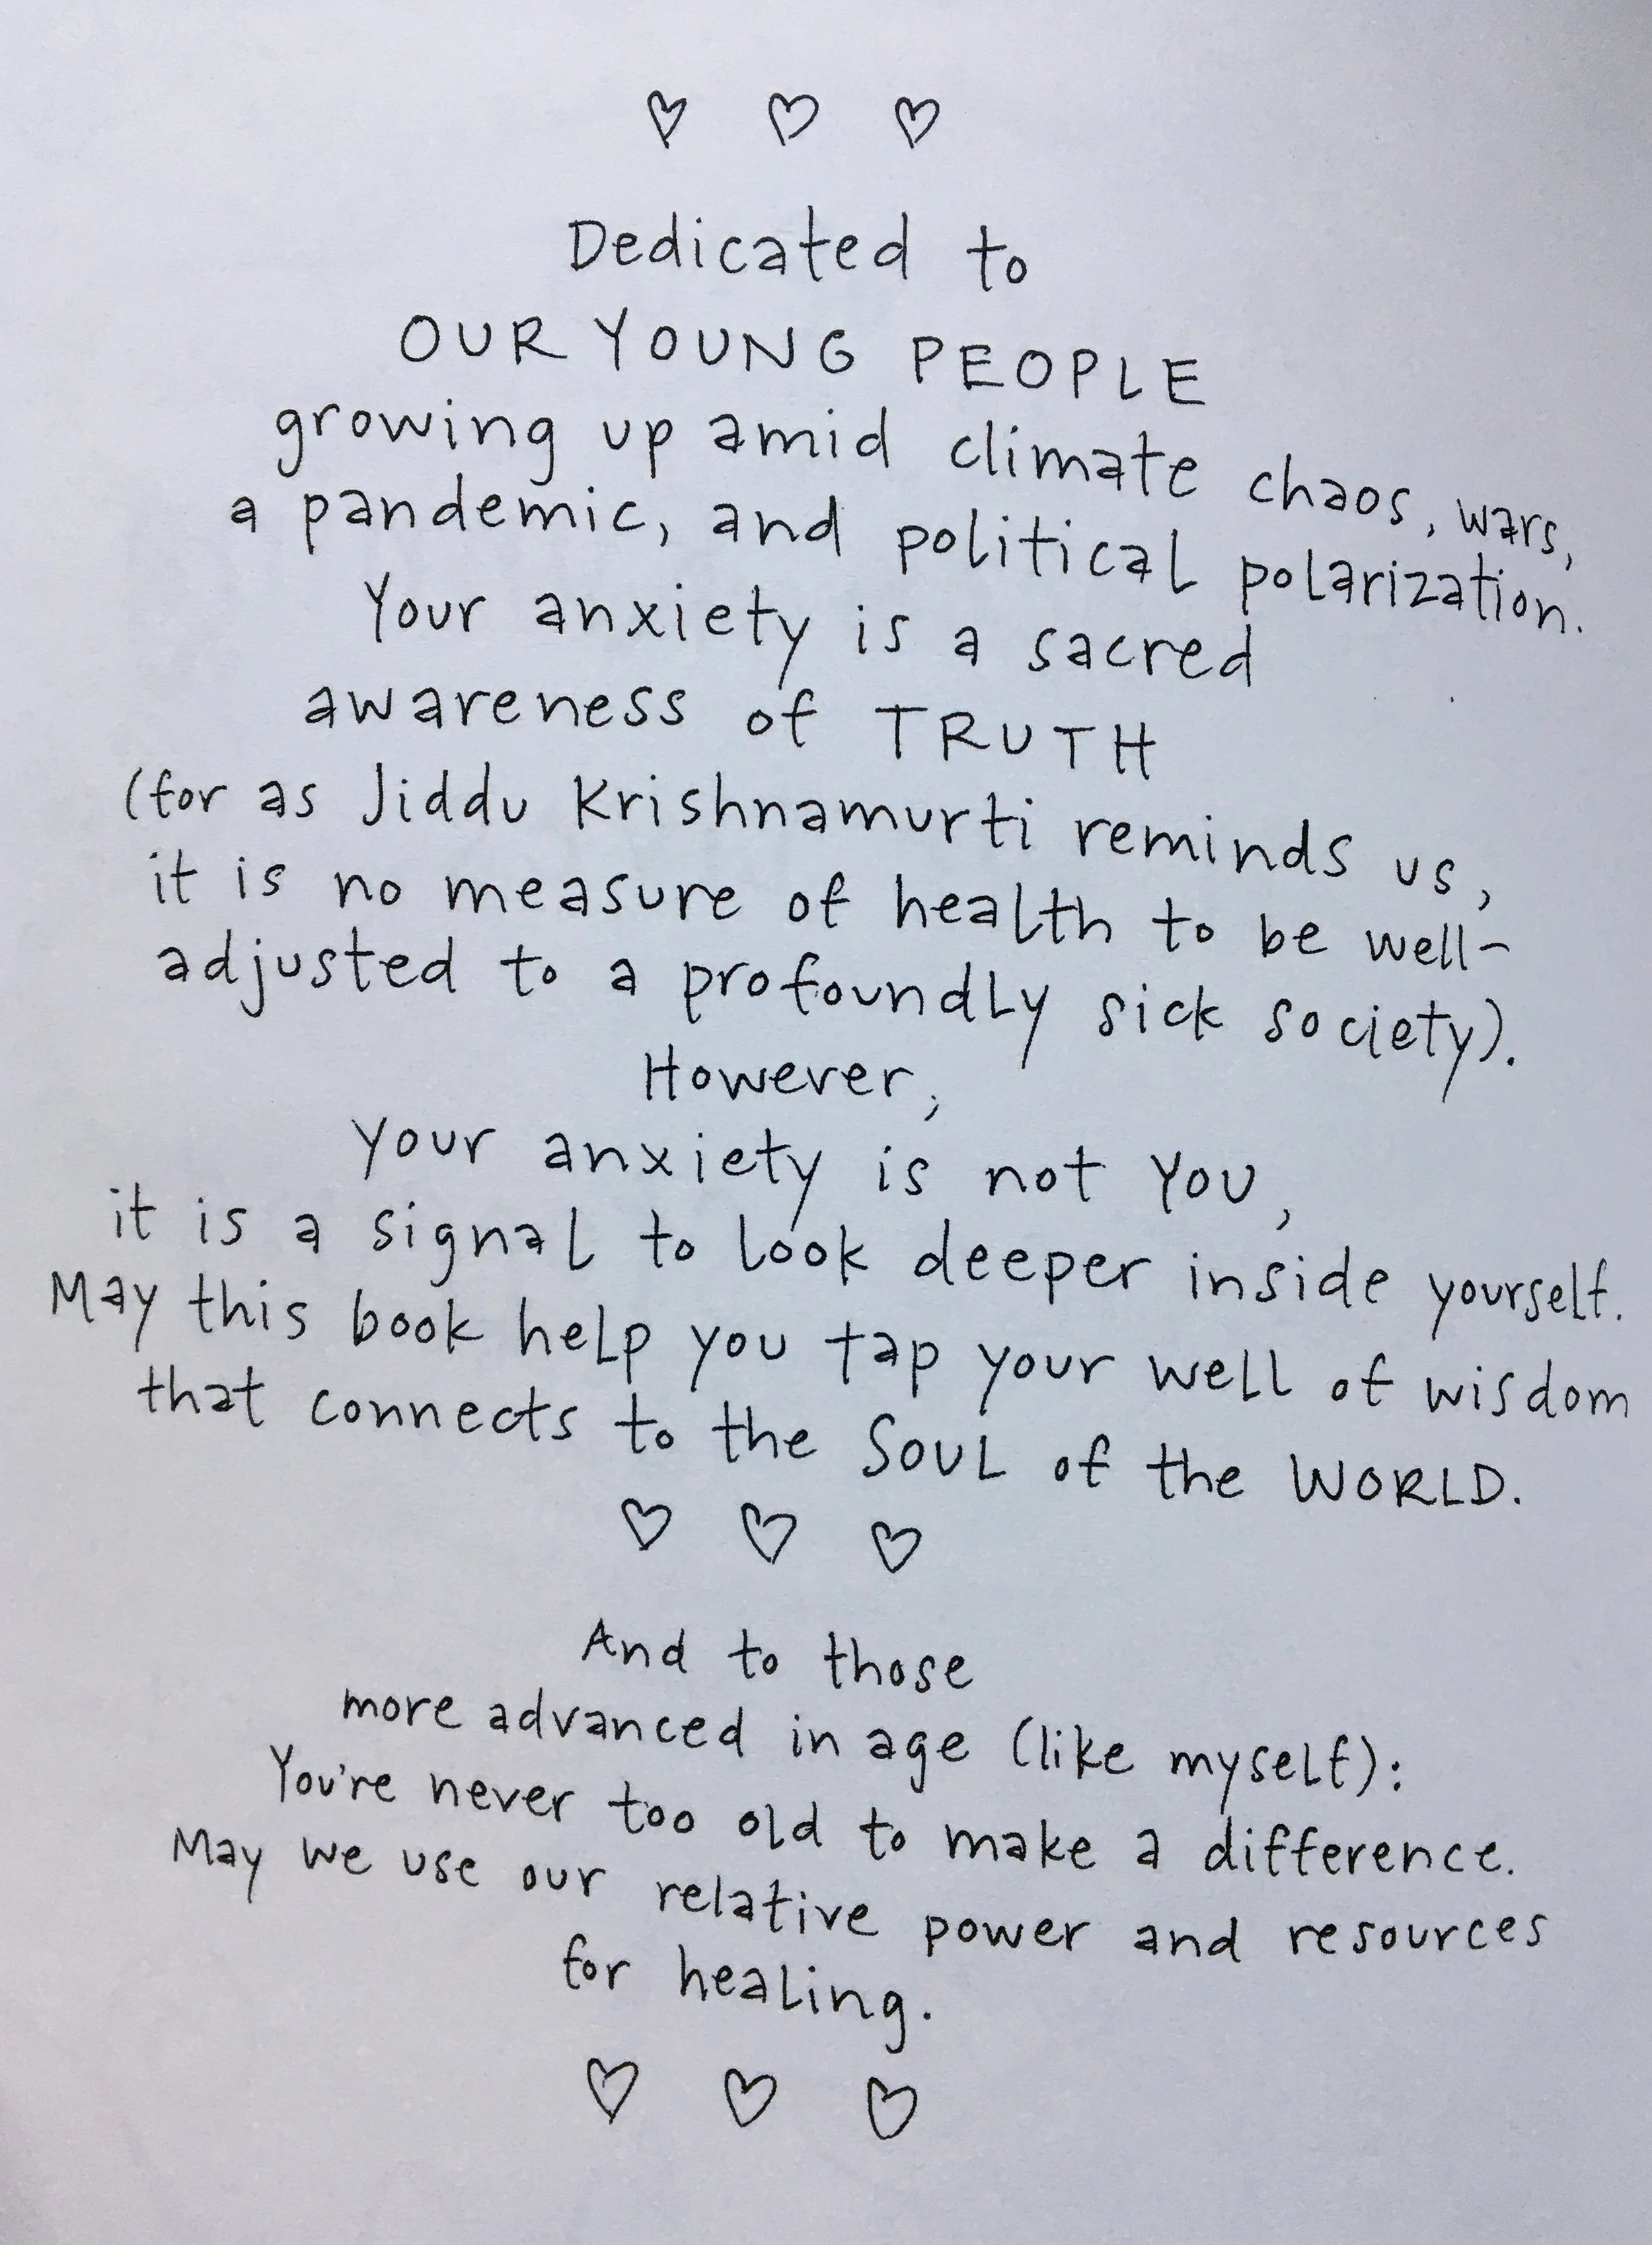 ♡ ♡ ♡
Dedicated to
OUR YOUNG PEOPLE
growing up amid climate chaos, wars,
a pandemic, and political polarization.
Your anxiety is a sacred
awareness of TRUTH
(for as Jiddu Krishnamurti reminds us,
it is no measure of health to be well-
adjusted to a profoundly sick society).
However,
your anxiety is not YOU,
it is a signal to look deeper inside yourself.
May this book help you tap your well of wisdom
that connects to the SOUL of the WORLD.
♡ ♡ ♡
And to those
more advanced in age (like myself):
You're never too old to make a difference.
May we use our relative power and resources
for healing.
♡ ♡ ♡